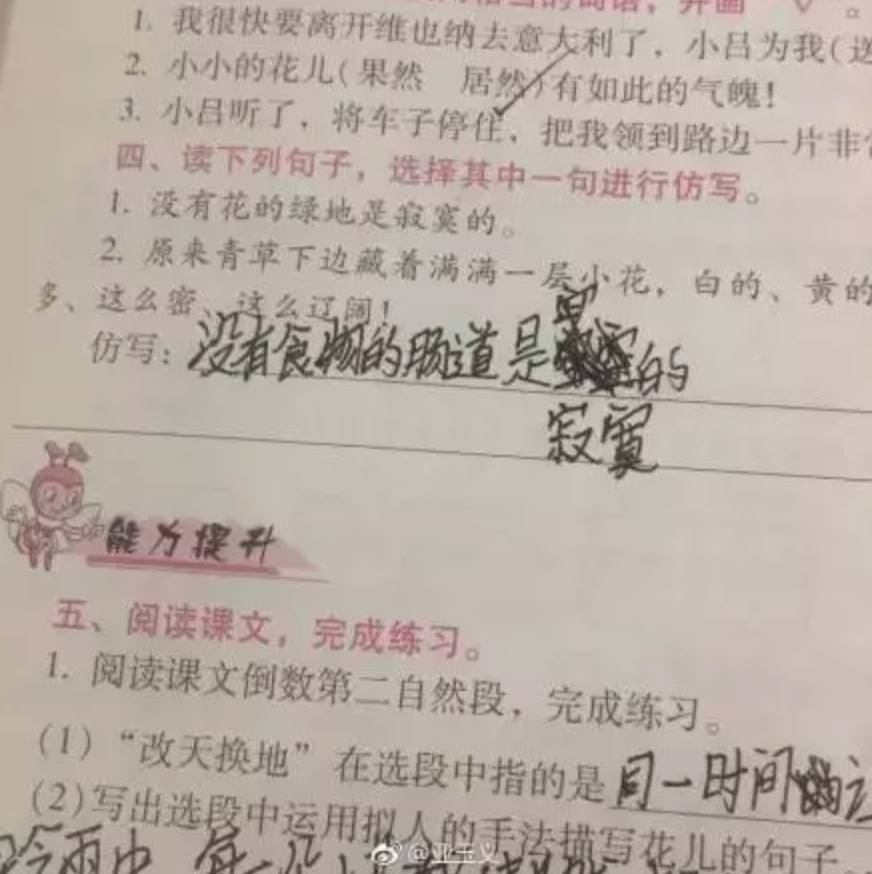 1. 我很快要离开维也纳去意大利了，小吕为我(送
2. 小小的花儿(果然 居然)有如此的气魄！
3. 小吕听了，将车子停住，把我领到路边一片非常
四、读下列句子，选择其中一句进行仿写。
1. 没有花的绿地是寂寞的。
2. 原来青草下边藏着满满一层小花，白的、黄的
多、这么密、这么辽阔！
仿写：没有食物的肠道是的
寂寞
能力提升
五、阅读课文，完成练习。
1. 阅读课文倒数第二自然段，完成练习。
(1)“改天换地”在选段中指的是同一时间
(2)写出选段中运用拟人的手法描写花儿的句子。
@亚玉义